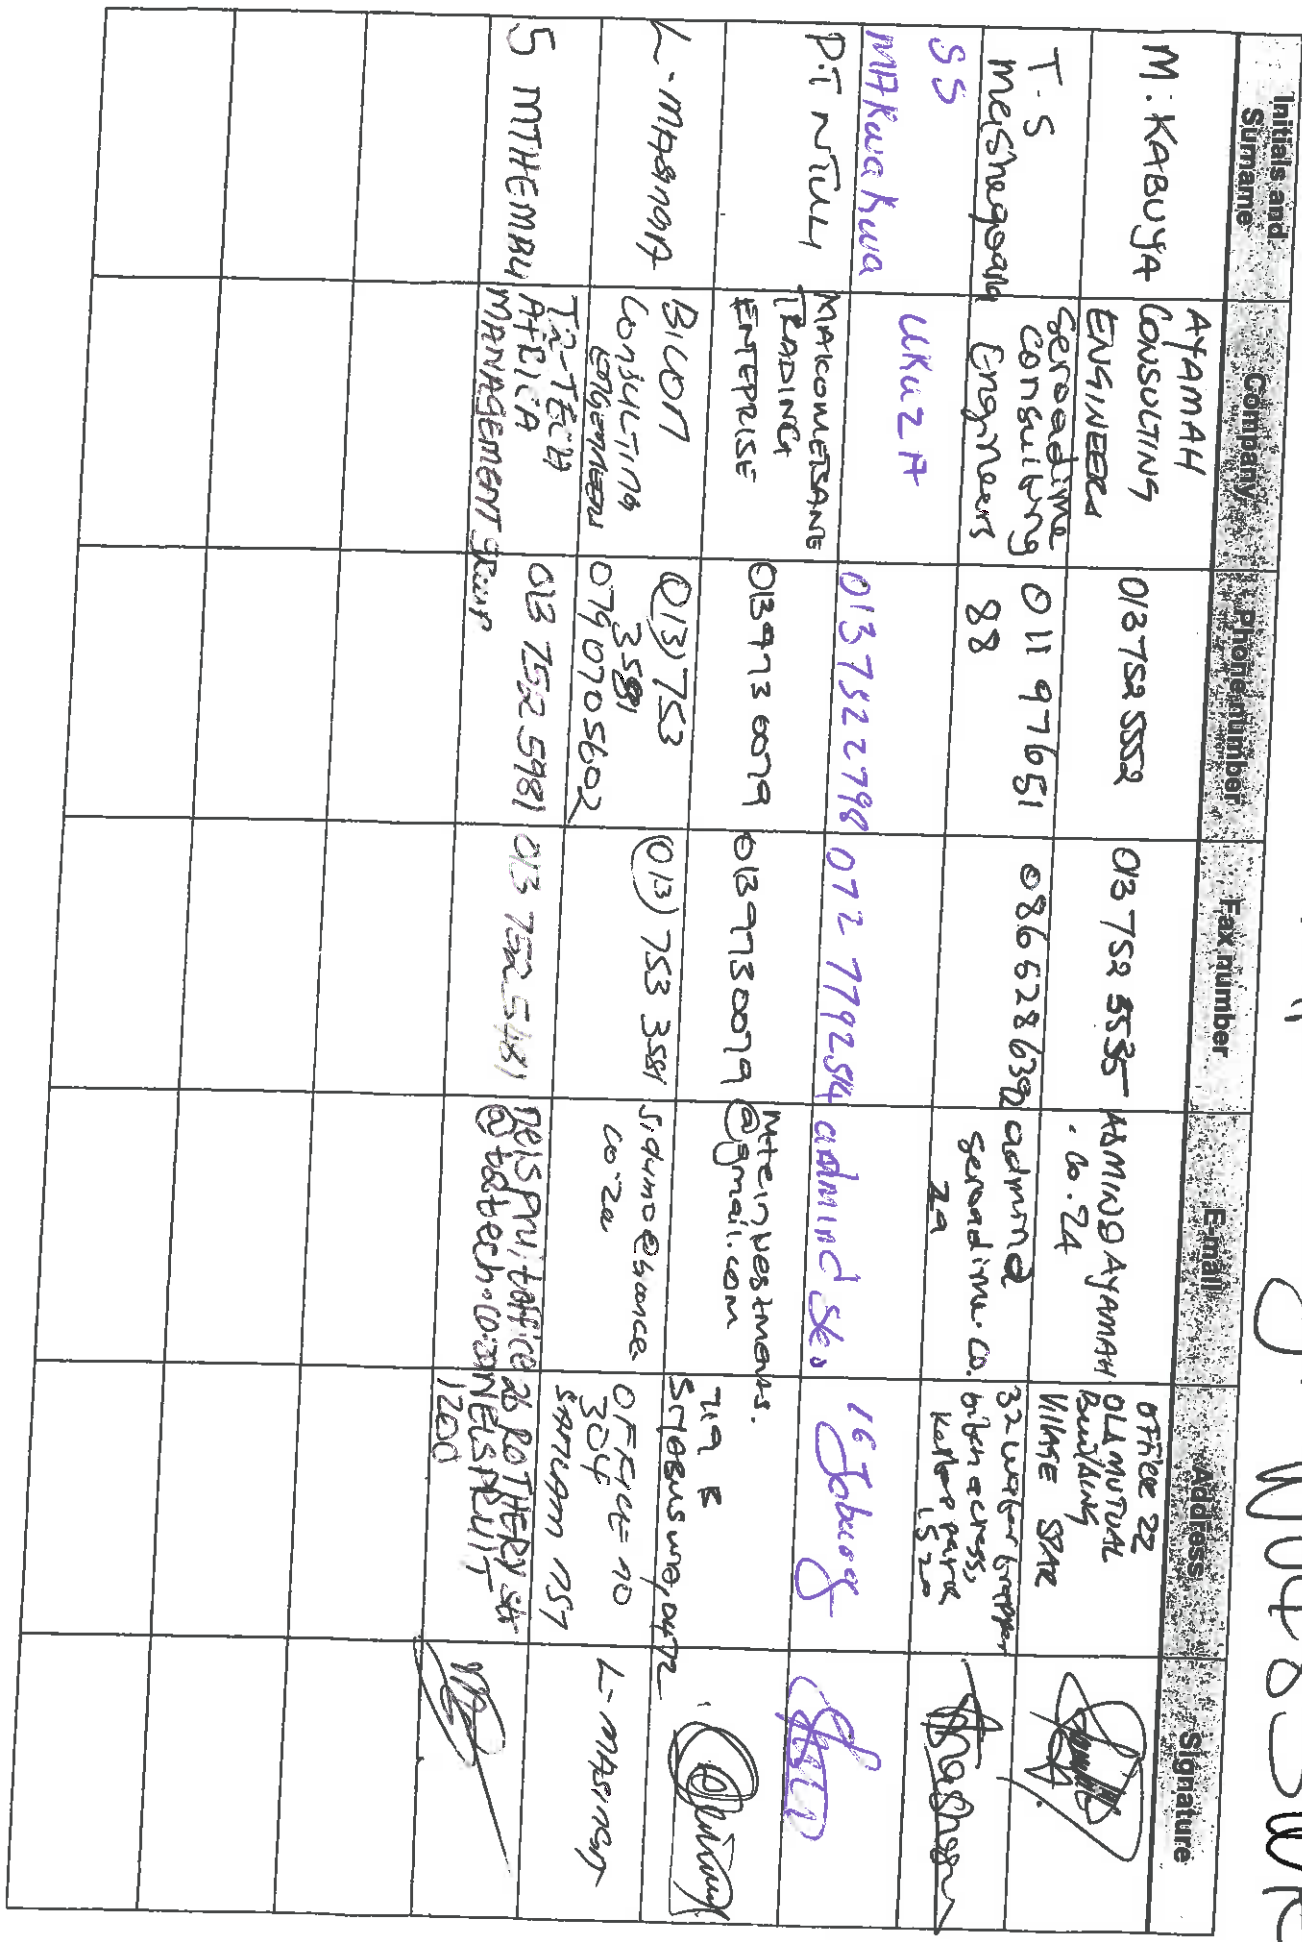 Initials and Surname Company Phone number Fax number E-mail Address Signature
M. KABUYA
AYAMAH
CONSULTING
ENGINEERS
013 752 5552
013 752 5535
ADMIN@AYAMAH
.CO.ZA
OFFICE 22
OLD MUTUAL
BUILDING
VILLAGE SPAR
T.S
Meishegoana
Seroadime
Consulting
Engineers
011 97651
88
0866286392
admin@
seroadime.co.
za
SS
MAKwaKwa
UKUZA
013 732 2798
072 7792514
P.T NTULI
MAKOMETSANE
TRADING
ENTEPRISE
0139730079
0139730079
Mteinvestments.
@gmail.com
719 B
SIYABUSWA, 0472
L. MASINGA
BICON
CONSULTING
ENGENEERS
(013) 753
3581
0790705602
(013) 753 3581
co.za
OFFICE NO
304
L. MASINGA
S MTHEMBU
AFRICA
MANAGEMENT GROUP
013 752 5981
013 752 5481
nelspruitoffice
26 ROTHERY STR
NELSPRUIT
1200